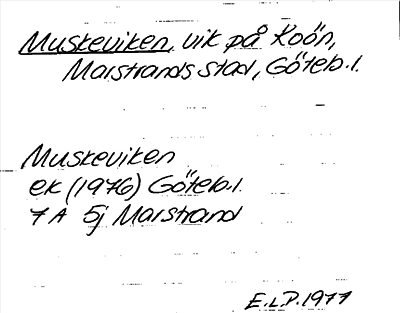 Muskeviken, vik på Koön,
Marstrands stad, Göteb.l.
Muskeviken
ek (1976) Göteb.l.
7A 5j Marstrand
E.L.P. 1977